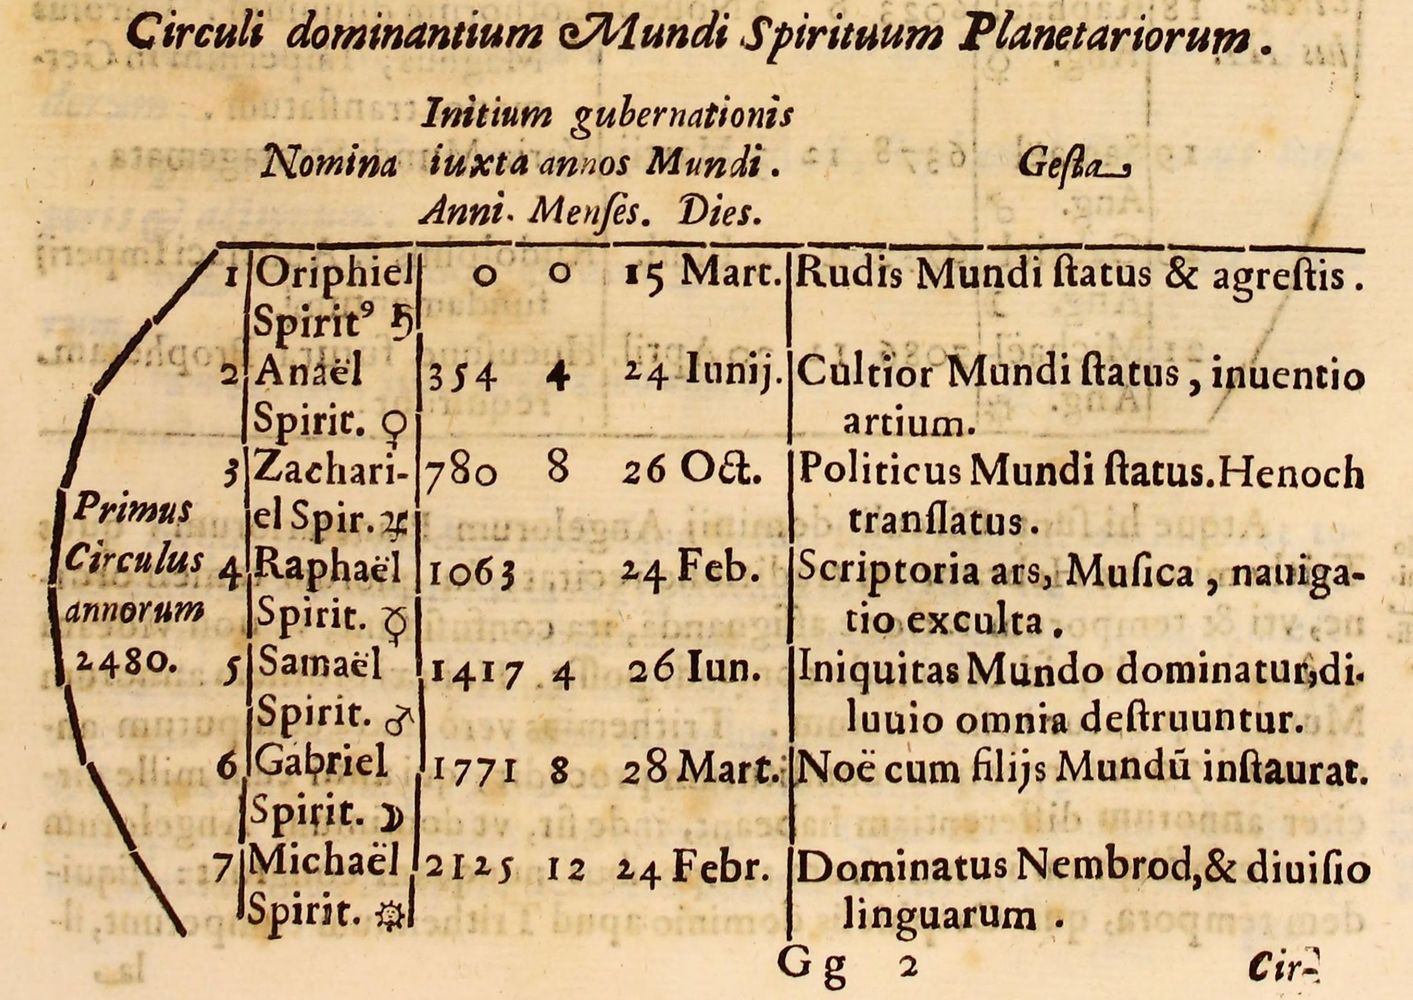 Circuli dominantium Mundi Spirituum Planetariorum.
Initium gubernationis
Nomina iuxta annos Mundi. Gesta
Anni. Menſes. Dies.
1 Oriphiel 0 0 15 Mart. Rudis Mundi ſtatus & agreſtis.
Spiritꝰ ♄
2 Anaël 354 4 24 Iunij. Cultior Mundi ſtatus, inuentio
Spirit. ♀ artium.
3 Zachari- 780 8 26 Oct. Politicus Mundi ſtatus. Henoch
Primus el Spir. ♃ tranſlatus.
Circulus 4 Raphaël 1063 24 Feb. Scriptoria ars, Muſica, nauiga-
annorum Spirit. ☿ tio exculta.
2480. 5 Samaël 1417 4 26 Iun. Iniquitas Mundo dominatur, di-
Spirit. ♂ luuio omnia deſtruuntur.
6 Gabriel 1771 8 28 Mart. Noë cum filijs Mundũ inſtaurat.
Spirit. ☽
7 Michaël 2125 12 24 Febr. Dominatus Nembrod, & diuiſio
Spirit. ☼ linguarum.
Gg 2 Cir-